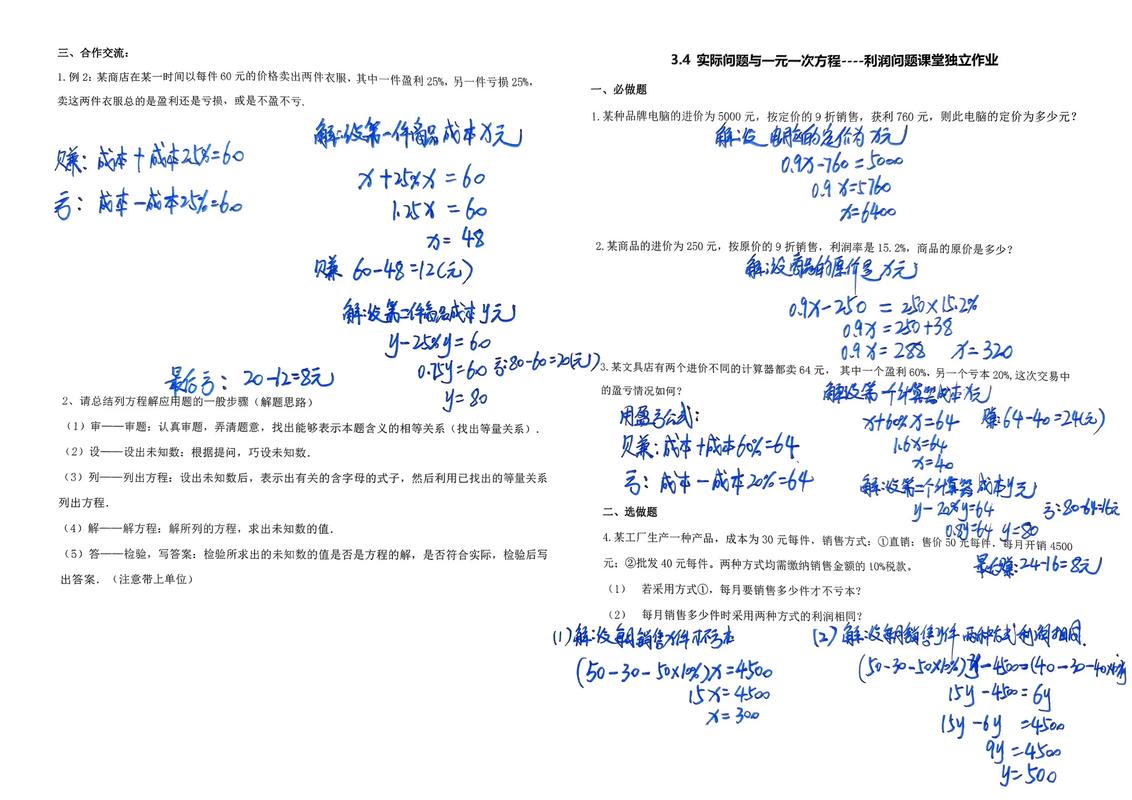 三、合作交流:
1.例2: 某商店在某一时间以每件60元的价格卖出两件衣服, 其中一件盈利25%, 另一件亏损25%,
卖这两件衣服总的是盈利还是亏损, 或是不盈不亏.
解:设第一件商品成本x元
赚: 成本+成本25%=60
亏: 成本-成本25%=60
x+25%x=60
1.25x=60
x=48
赚 60-48=12(元)
解:设第二件商品成本y元
y-25%y=60
0.75y=60 亏:80-60=20(元)
y=80
最后亏: 20-12=8元
2、请总结列方程解应用题的一般步骤(解题思路)
(1)审——审题: 认真审题, 弄清题意, 找出能够表示本题含义的相等关系(找出等量关系).
(2)设——设出未知数: 根据提问, 巧设未知数.
(3)列——列出方程: 设出未知数后, 表示出有关的含字母的式子, 然后利用已找出的等量关系
列出方程.
(4)解——解方程: 解所列的方程, 求出未知数的值.
(5)答——检验, 写答案: 检验所求出的未知数的值是否是方程的解, 是否符合实际, 检验后写
出答案. (注意带上单位)
3.4 实际问题与一元一次方程----利润问题课堂独立作业
一、必做题
1.某种品牌电脑的进价为5000元, 按定价的9折销售, 获利760元, 则此电脑的定价为多少元?
解:设 电脑的定价为x元
0.9x-760=5000
0.9x=5760
x=6400
2.某商品的进价为250元, 按原价的9折销售, 利润率是15.2%, 商品的原价是多少?
解:设商品的原价是x元
0.9x-250=250×15.2%
0.9x=250+38
0.9x=288 x=320
3.某文具店有两个进价不同的计算器都卖64元, 其中一个盈利60%, 另一个亏本20%,这次交易中
的盈亏情况如何?
解:设第一个计算器成本x元
用盈亏公式:
赚:成本+成本60%=64
亏: 成本-成本20%=64
x+60%x=64 赚:64-40=24(元)
1.6x=64
x=40
解:设第二个计算器成本y元
y-20%y=64 亏:80-64=16元
0.8y=64 y=80
最后赚:24-16=8元
二、选做题
4.某工厂生产一种产品, 成本为30元每件, 销售方式: ①直销: 售价50元每件, 每月开销4500
元; ②批发40元每件。两种方式均需缴纳销售金额的10%税款。
(1) 若采用方式①, 每月要销售多少件才不亏本?
(2) 每月销售多少件时采用两种方式的利润相同?
(1)解:设每月销售x件不亏本
(50-30-50×10%)x=4500
15x=4500
x=300
(2)解:设每月销售y件 两种方式利润相同.
(50-30-50×10%)y-4500=(40-30-40×10%)y
15y-4500=6y
15y-6y=4500
9y=4500
y=500